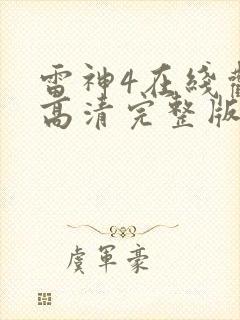 雷神4在线
高清完整版
虞军豪